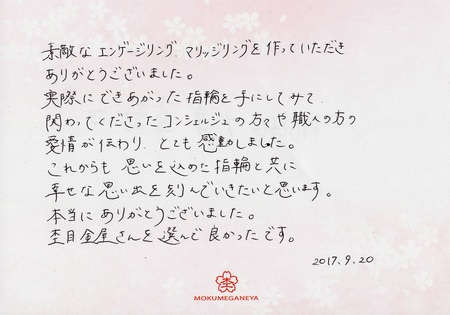 素敵な エンゲージリング、マリッジリングを 作っていただき
ありがとうございました。
実際に できあがった 指輪を 手にしてみて、
関わってくださった コンシェルジュの 方々や 職人の方の
愛情が 伝わり、とても 感動しました。
これからも 思いを 込めた 指輪と 共に
幸せな 思い出を 刻んでいきたいと 思います。
本当に ありがとうございました。
杢目金屋さんを 選んで 良かったです。
2017.9.20
MOKUMEGANEYA